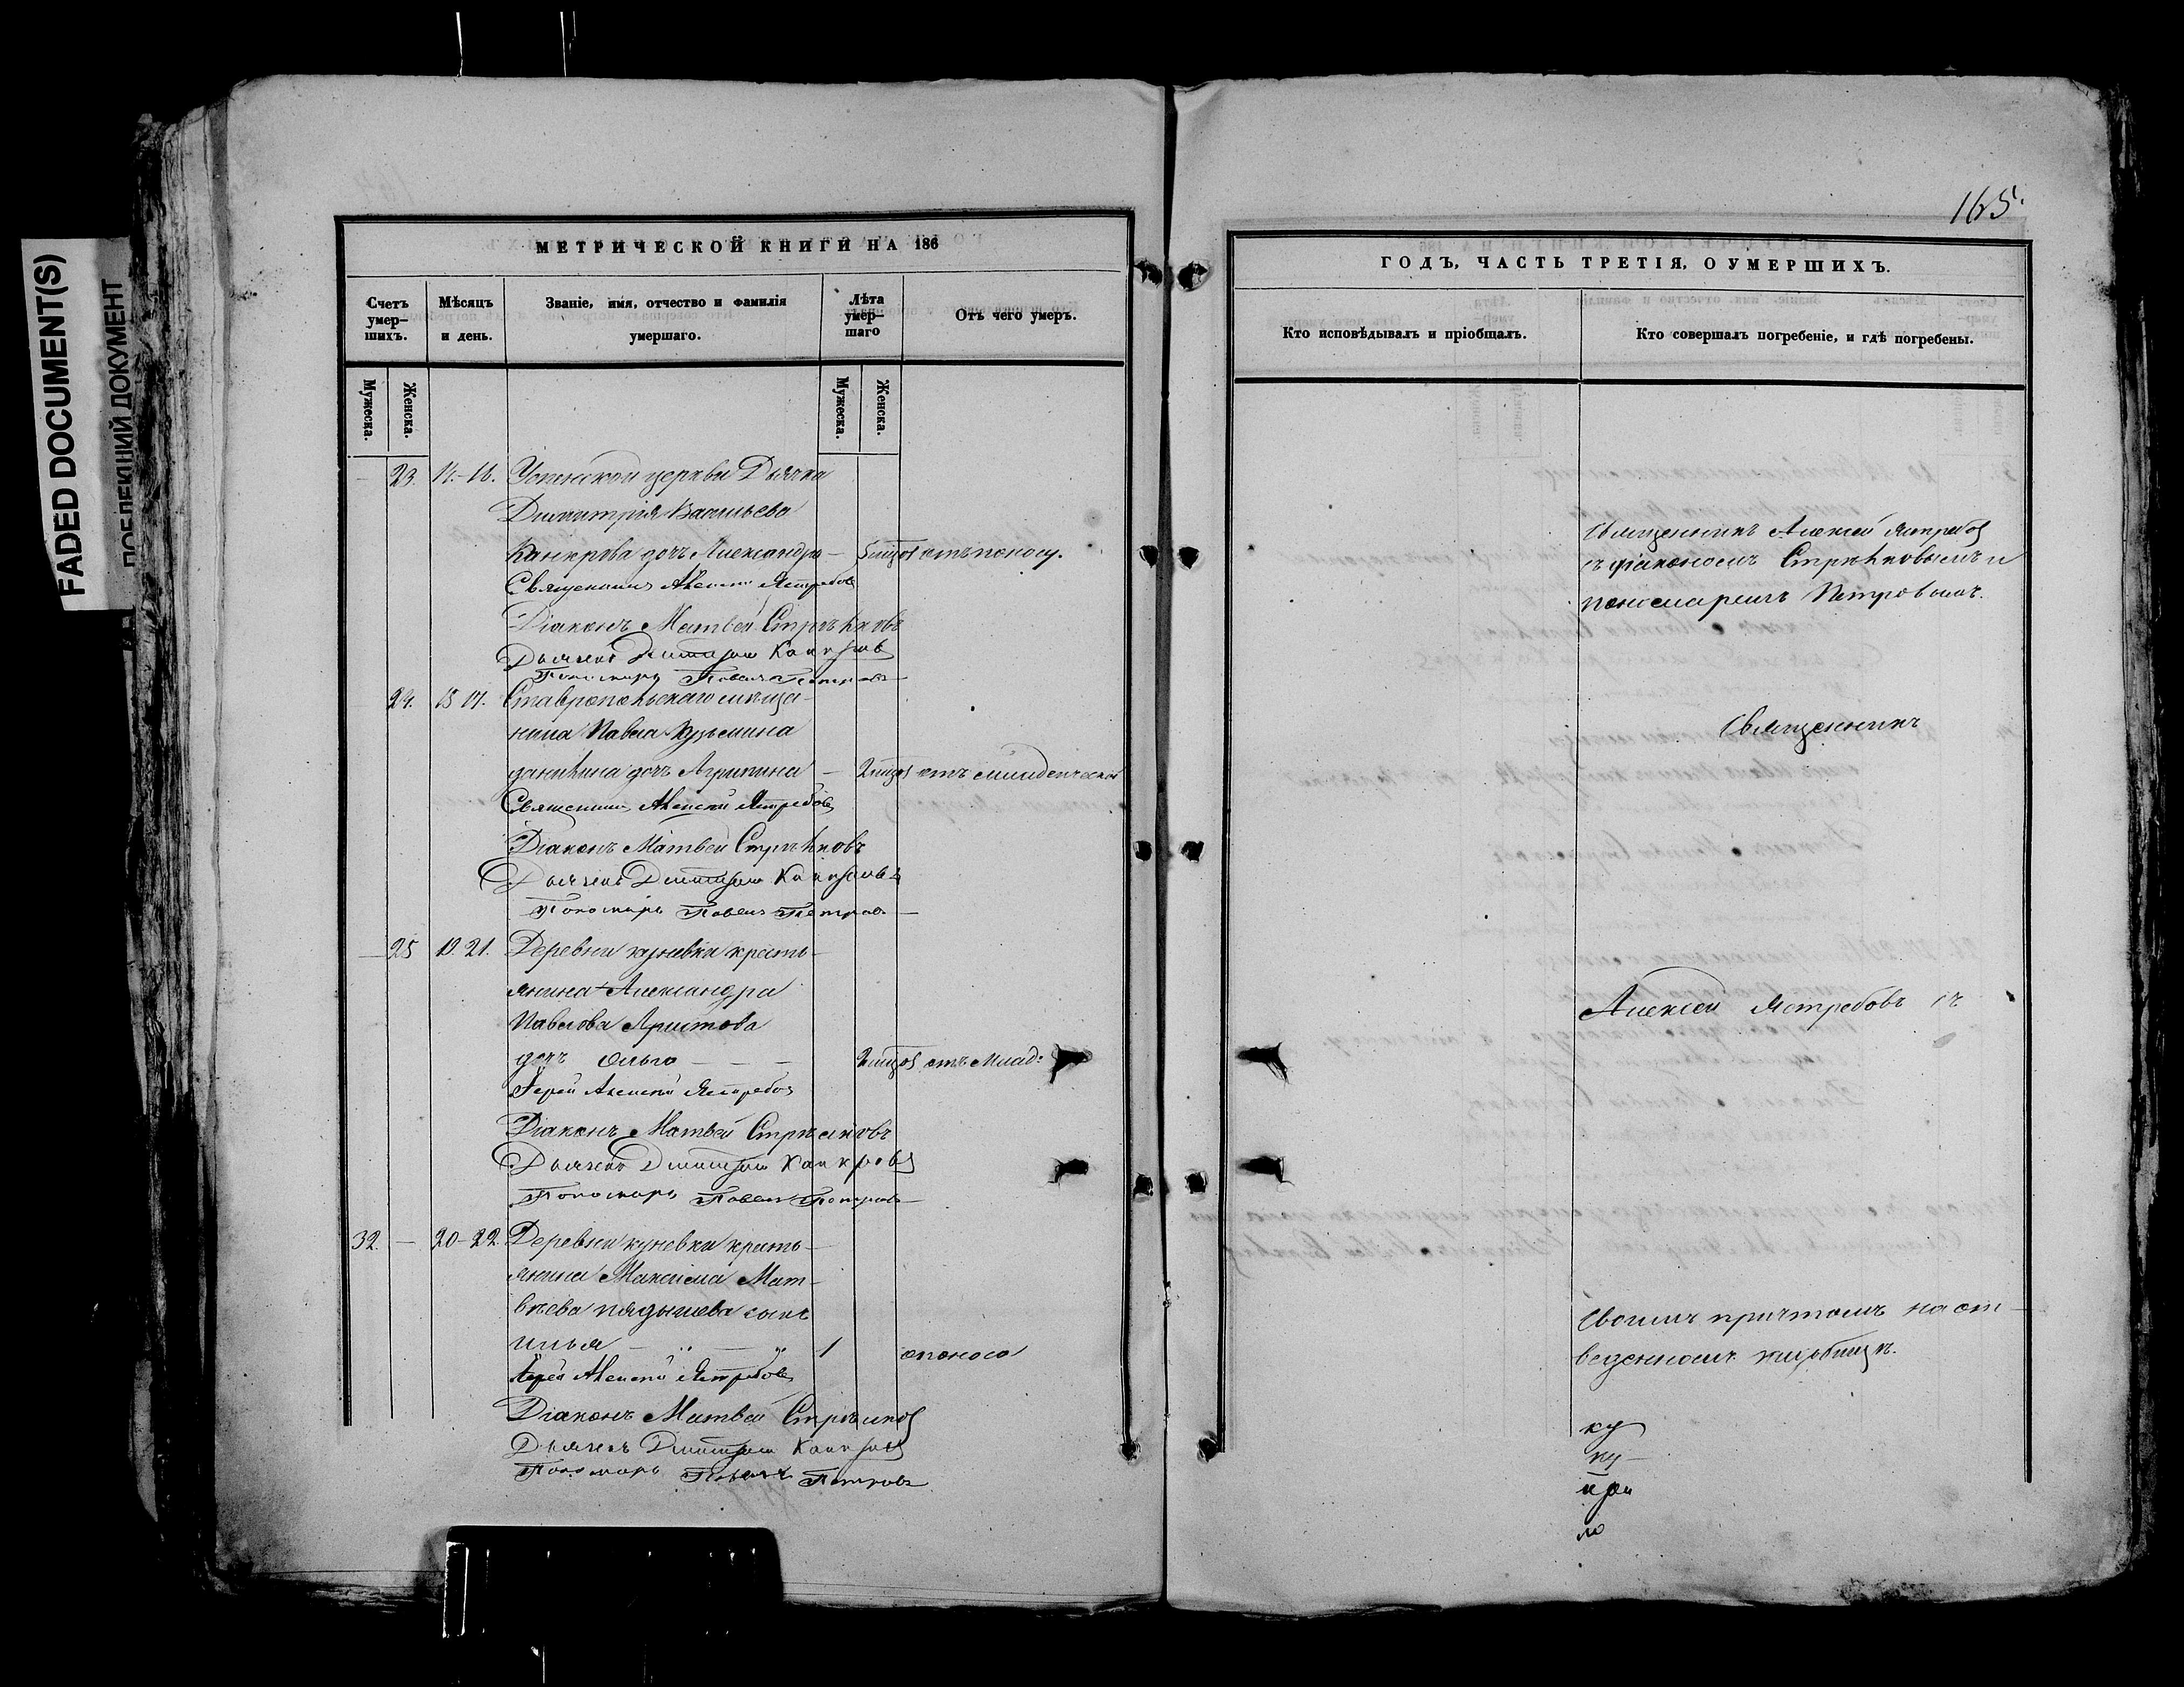 FADED DOCUMENT(S)
ПОБЛЕКШИЙ ДОКУМЕНТ
МЕТРИЧЕСКОЙ КНИГИ НА 186
Счетъ умер-шихъ.
Мѣсяцъ и день.
Званіе, имя, отчество и фамилія умершаго.
Лѣта умер-шаго
Отъ чего умеръ.
Мужеска.
Женска.
Мужеска.
Женска.
23. 14.-16. Успенской церкви Дьячка
Димитрія Васильева
Канкрова дочь Александра — 5 отъ поносу.
Священникъ Алексій Ястребов
Діаконъ Матвей Стрѣлковъ
Дьячекъ Димитрий Канкров
Пономарь Павелъ Петров
24. 15 17. Ставропольскаго мѣща-
нина Павла Кузьмина
дочь Агрипина — 2 отъ младенческой
Священникъ Алексій Ястребов
Діаконъ Матвей Стрѣлковъ
Дьячекъ Димитрий Канкровъ
Пономарь Павелъ Петров
— 25 19. 21. Деревни куневки кресть-
янина Александра
Павлова Аристова
дочь Ольга — — — 2 отъ млад:
Іерей Алексій Ястребов
Діаконъ Матвей Стрѣлковъ
Дьячекъ Димитрий Канкров
Пономарь Павелъ Петров
32. — 20-22. Деревни куневки кресть-
янина Максима Мат-
вѣева пядышева сынъ
илья — — 1 поноса
Іерей Алексій Ястребов
Діаконъ Матвей Стрѣлков
Дьячекъ Димитрий Канкров
Пономарь Павелъ Петровъ
165.
ГОДЪ, ЧАСТЬ ТРЕТІЯ, О УМЕРШИХЪ.
Кто исповѣдывалъ и пріобщалъ.
Кто совершалъ погребеніе, и гдѣ погребены.
Священникъ Алексей Ястребов
съ діакономъ Стрѣлковымъ и
пономаремъ Петровымъ.
Священникъ
Алексей Ястребовъ съ
своимъ причтомъ на от-
веденномъ кладбищѣ.
ку
ку-